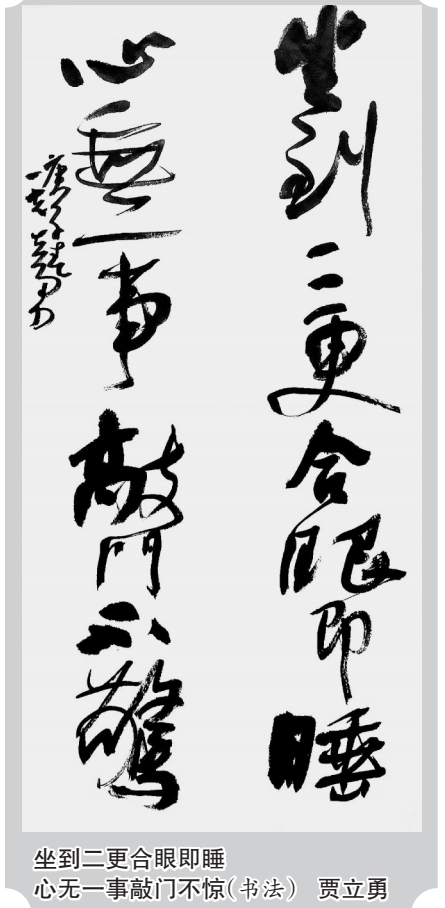 坐到二更合眼即睡
心無一事敲門不驚
坐到二更合眼即睡
心无一事敲门不惊(书法) 贾立勇